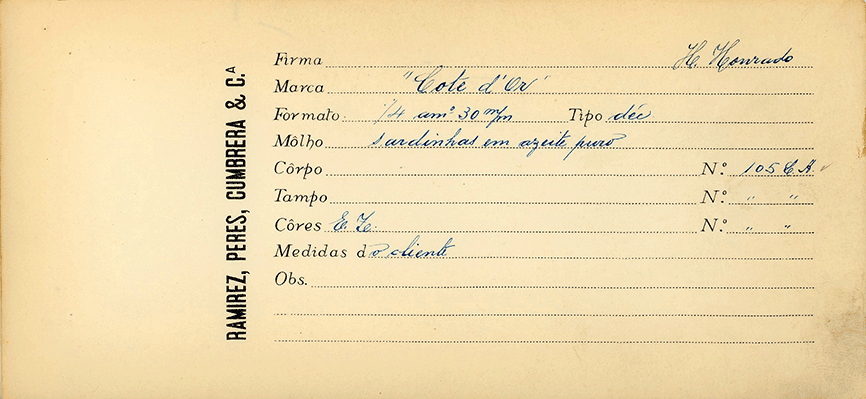 RAMIREZ, PERES, CUMBRERA & C.ᴬ
Firma H. Honrado
Marca "Cote d'Or"
Formato ¼ amº 30 m/m Tipo déc
Môlho sardinhas em azeite puro
Côrpo Nº. 105 C.A.
Tampo Nº. " "
Côres Nº. " "
Medidas do cliente
Obs.